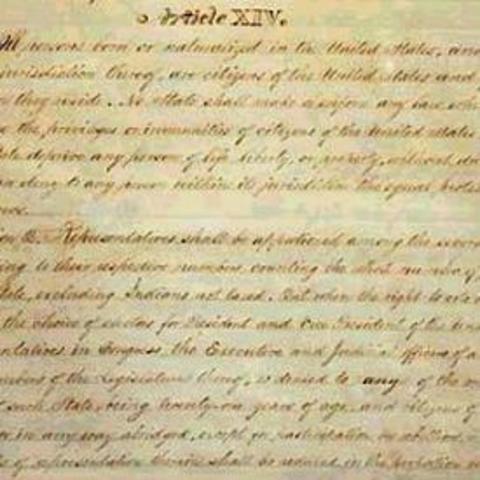 Article XIV.
All persons born or naturalized in the United States, and
jurisdiction thereof, are citizens of the United States and
they reside. No State shall make or enforce any law
the privileges or immunities of citizens of the United States
deprive any person of life, liberty, or property, without
deny to any person within its jurisdiction the equal
Representatives shall be apportioned among the
to their respective numbers, counting the whole number of
excluding Indians not taxed. But when the right to
the choice of electors for President and Vice President of the
in Congress, the Executive and Judicial officers of a
of the Legislature thereof, is denied to any of the
such State, being twenty-one years of age, and citizens of
or in any way abridged, except for participation in rebellion,
of representation therein shall be reduced in the proportion